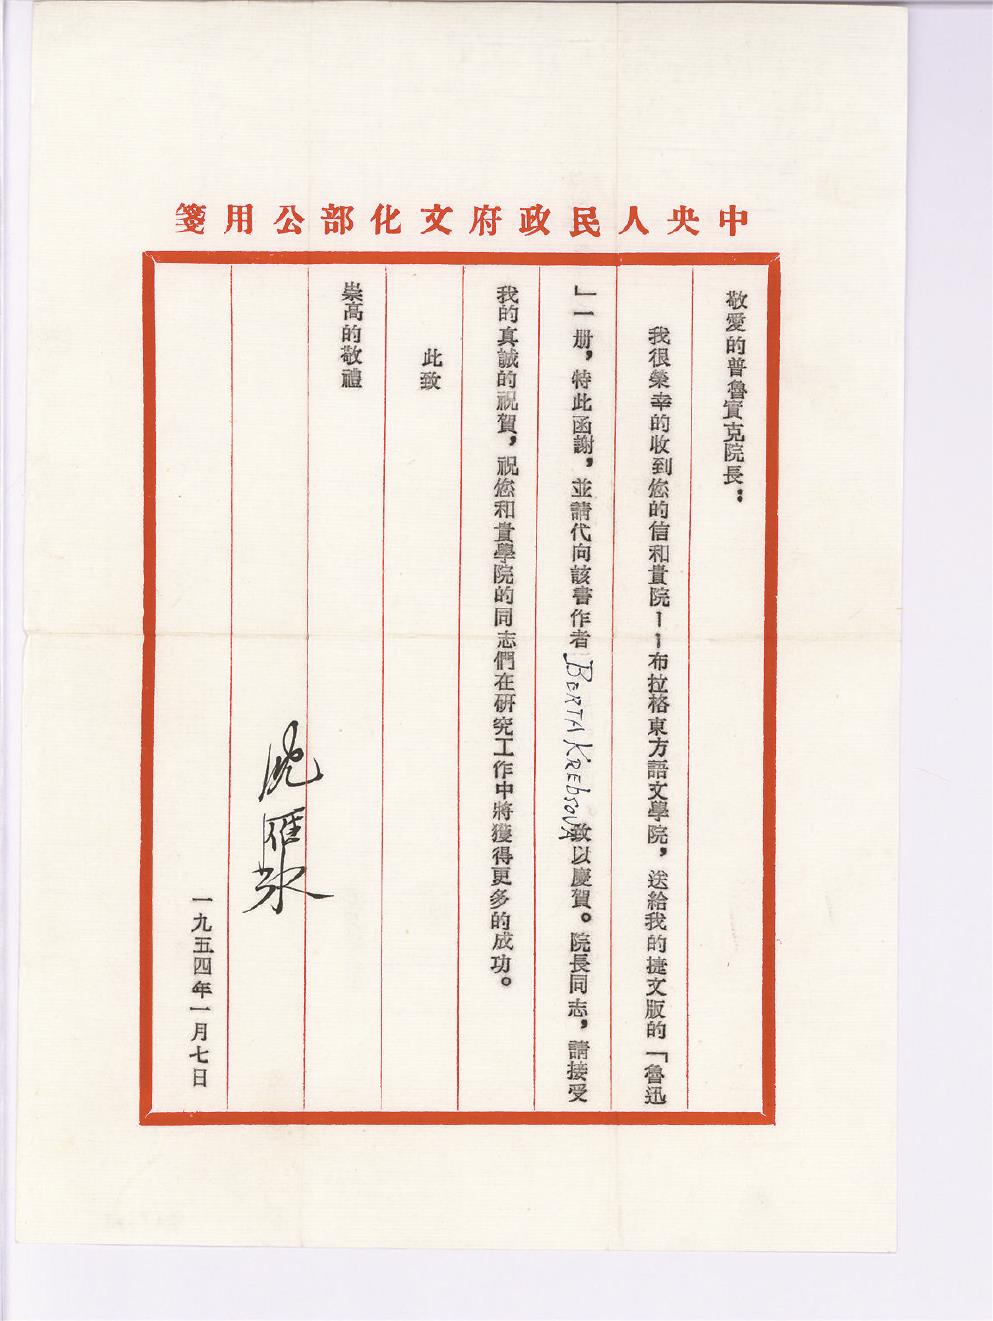 中央人民政府文化部公用箋
敬愛的普魯實克院長：
我很榮幸的收到您的信和貴院——布拉格東方語文學院，送給我的捷文版的「魯迅
」一册，特此函謝，並請代向該書作者 BERTA KREBSOVA 致以慶賀。院長同志，請接受
我的真誠的祝賀，祝您和貴學院的同志們在研究工作中將獲得更多的成功。
此致
崇高的敬禮
沈雁冰
一九五四年一月七日